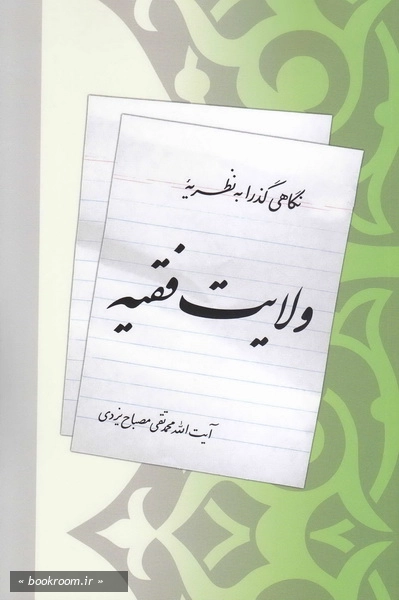 نگاهی گذرا به نظریهٔ
ولایت فقیه
آیت الله محمد تقی مصباح یزدی
« bookroom.ir »